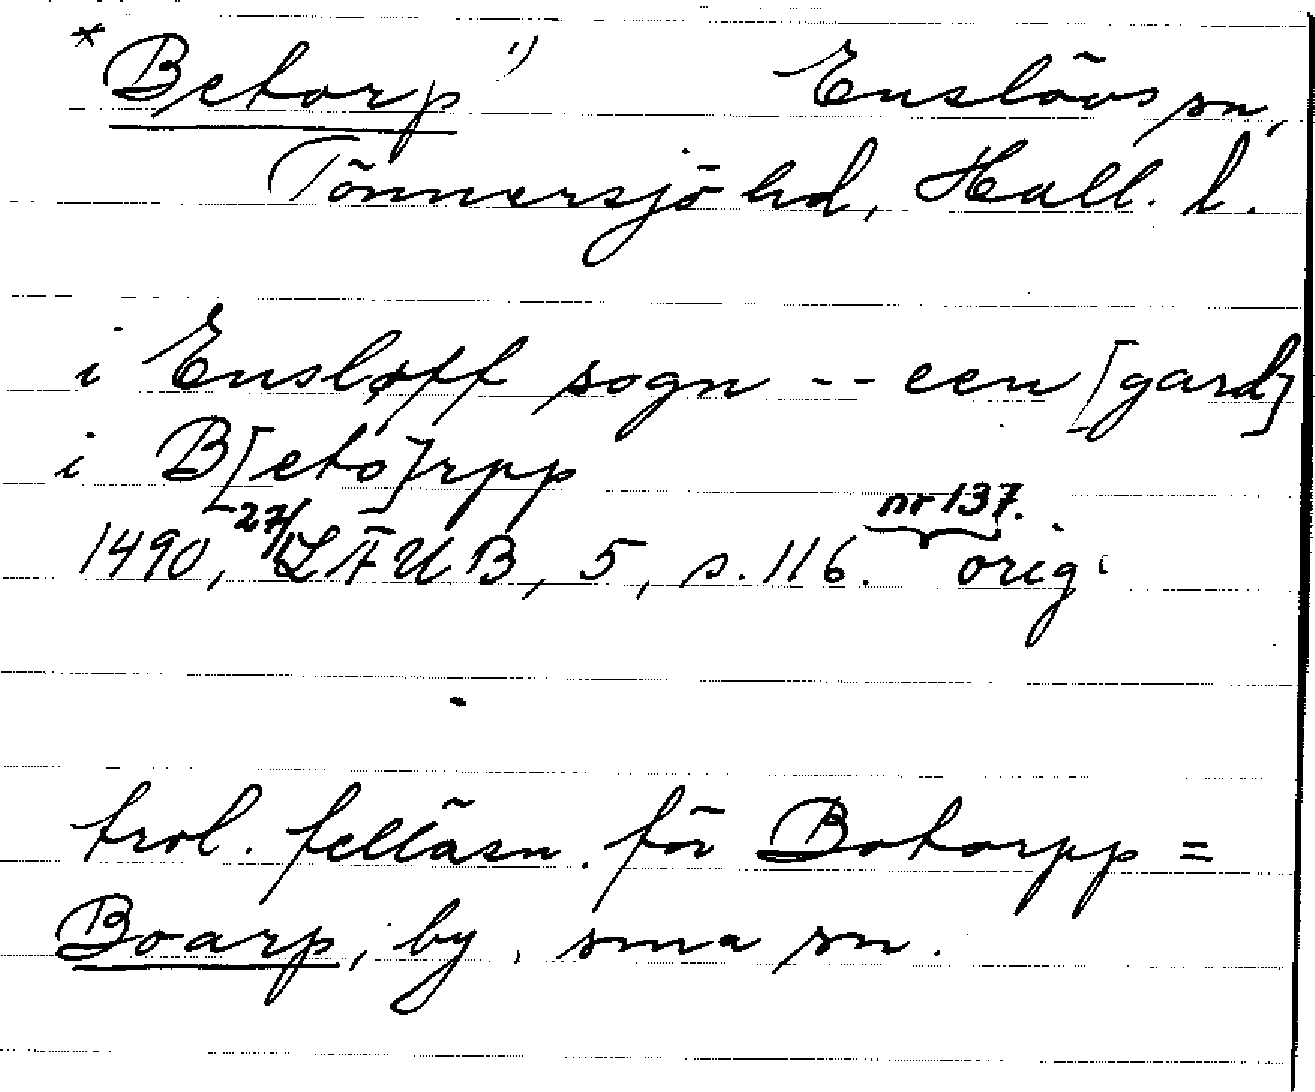 *Betorp ¹) Enslövs sn,
Tönnersjö hd, Hall. l.
i Ensløff sogn -- een [gard]
i B[eto]rpp
nr 137.
1490, 27/ LÄUB, 5, s. 116. orig.
trol. felläsn. för Botorpp =
Boarp, by, sma sn.